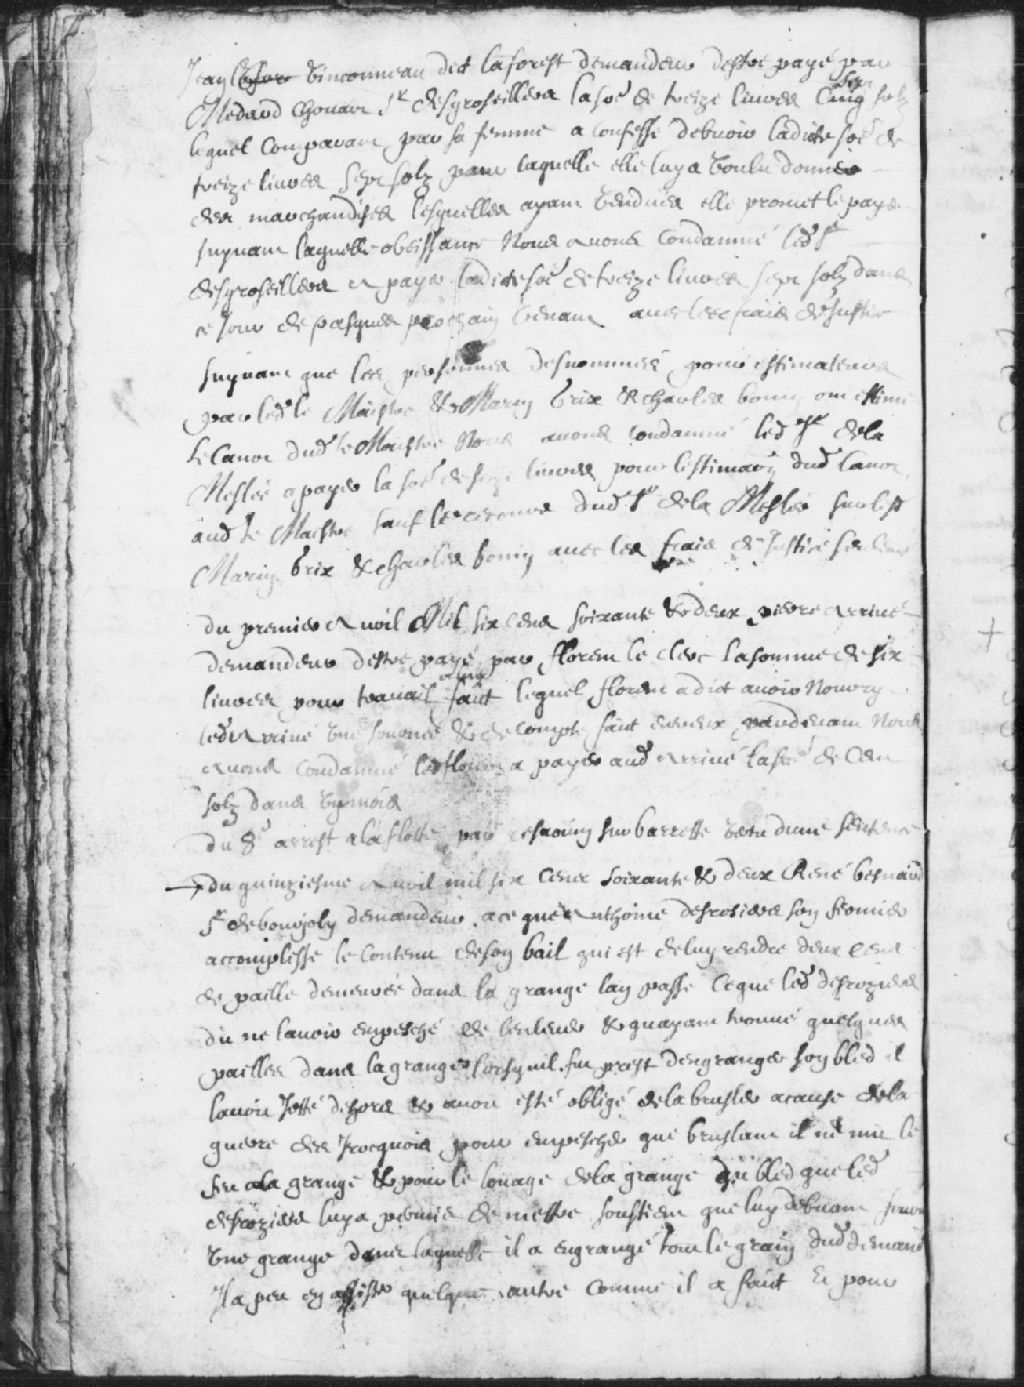 Jean Vinconneau dict laforest demandeur destre payé par
Medard Chouart Sr desgroseilleres la soe de treize livres Cinq sept solz
lequel Comparant par sa femme a Confessé debvoir ladicte soe de
treize livres sept solz pour laquelle elle luy a voulu donner
des marchandises lesquelles ayant vendues elle promet le payer
suyvant laquelle obeissance Nous avons Condamné led Sr
desgroseilleres a payer ladicte soe de treize livres sept solz dans
ce jour de pasques prochain venant avec les frais de Justice
suyvant que les personnes desnommés pour estimateurs
par led le Maistre & Marin brix & charles bonin ont estimé
le Canot dud le Maistre Nous avons condamné led Sr de la
Meslée a payer la soe de seize livres pour lestimaon dud Canot
aud le Maistre sauf le recours dud Sr de la Meslée sur lesd
Marin brix & charles bonin avec les frais de Justice
du premier Avril Mil six cens soixante & deux pierre Arriné
demandeur destre payé par florent le clerc la somme de six
livres pour travail faict lequel florent a dict avoir Nourry
led Arriné & de compte faict entreux pardevant Nous
avons Condamné led florent a payer aud Arriné la soe de Cent
solz dans un mois
du 8e arrest a la flotte par sur barrette vertu dune sentence
du quinziesme Avril mil six cens soixante & deux René besnard
Sr de bourjoly demandeur a ce que Anthoine desrosiers son fermier
accomplisse le Contenu de son bail qui est de luy rendre deux cens
de paille demeurée dans la grange lan passé Ce que led desroziers
dit ne lavoir empesché de & quayant trouvé quelques
pailles dans la grange lorsquil fut prest dengranger son bled il
lavoit Jetté dehors & avoit esté obligé de la brusler a cause de la
guerre des Irocquois pour empescher que bruslant il ne mit le
feu a la grange & pour le louage de la grange du bled que led
desroziers luy a promis de mettre soustient que luy debvant
une grange dans laquelle il a engrangé tout le grain dud demand
Il a peu en quelque autre comme il a faict Et pour